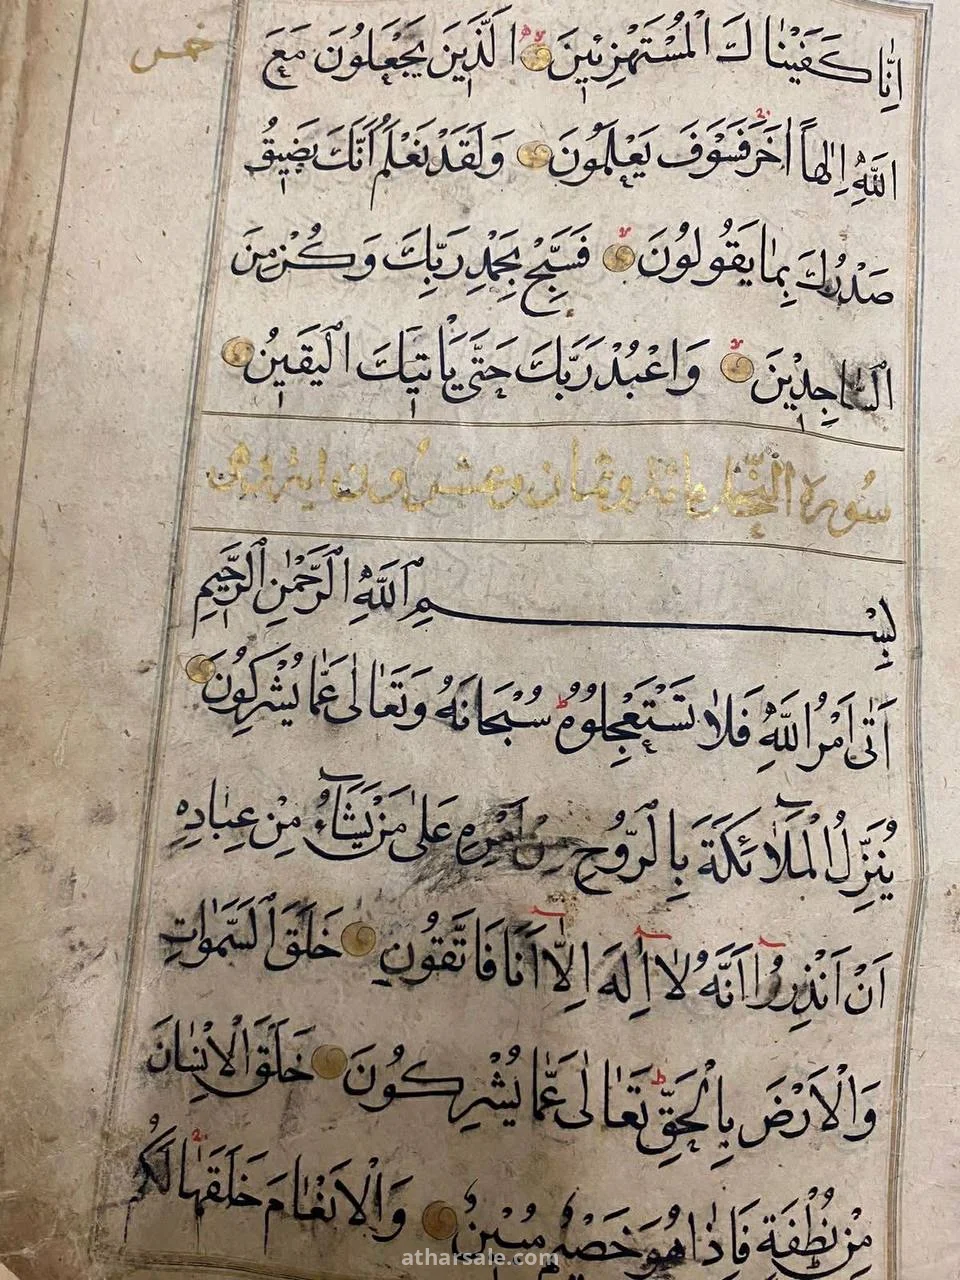 خمس
اِنَّا كَفَيْنَاكَ الْمُسْتَهْزِئِينَ الَّذِينَ يَجْعَلُونَ مَعَ
اللّٰهِ اِلٰهًا اٰخَرَ فَسَوْفَ يَعْلَمُونَ وَلَقَدْ نَعْلَمُ اَنَّكَ يَضِيقُ
صَدْرُكَ بِمَا يَقُولُونَ فَسَبِّحْ بِحَمْدِ رَبِّكَ وَكُنْ مِنَ
السَّاجِدِينَ وَاعْبُدْ رَبَّكَ حَتّٰى يَاْتِيَكَ الْيَقِينُ
سورة النحل مائة وثمان وعشرون اية
بِسْمِ اللّٰهِ الرَّحْمٰنِ الرَّحِيمِ
اَتٰى اَمْرُ اللّٰهِ فَلَا تَسْتَعْجِلُوهُ سُبْحَانَهُ وَتَعَالٰى عَمَّا يُشْرِكُونَ
يُنَزِّلُ الْمَلَآئِكَةَ بِالرُّوحِ مِنْ اَمْرِهِ عَلٰى مَنْ يَشَآءُ مِنْ عِبَادِهِ
اَنْ اَنْذِرُوا اَنَّهُ لَا اِلٰهَ اِلَّا اَنَا فَاتَّقُونِ خَلَقَ السَّمٰوَاتِ
وَالْاَرْضَ بِالْحَقِّ تَعَالٰى عَمَّا يُشْرِكُونَ خَلَقَ الْاِنْسَانَ
مِنْ نُطْفَةٍ فَاِذَا هُوَ خَصِيمٌ مُبِينٌ وَالْاَنْعَامَ خَلَقَهَا لَكُمْ
atharsale.com